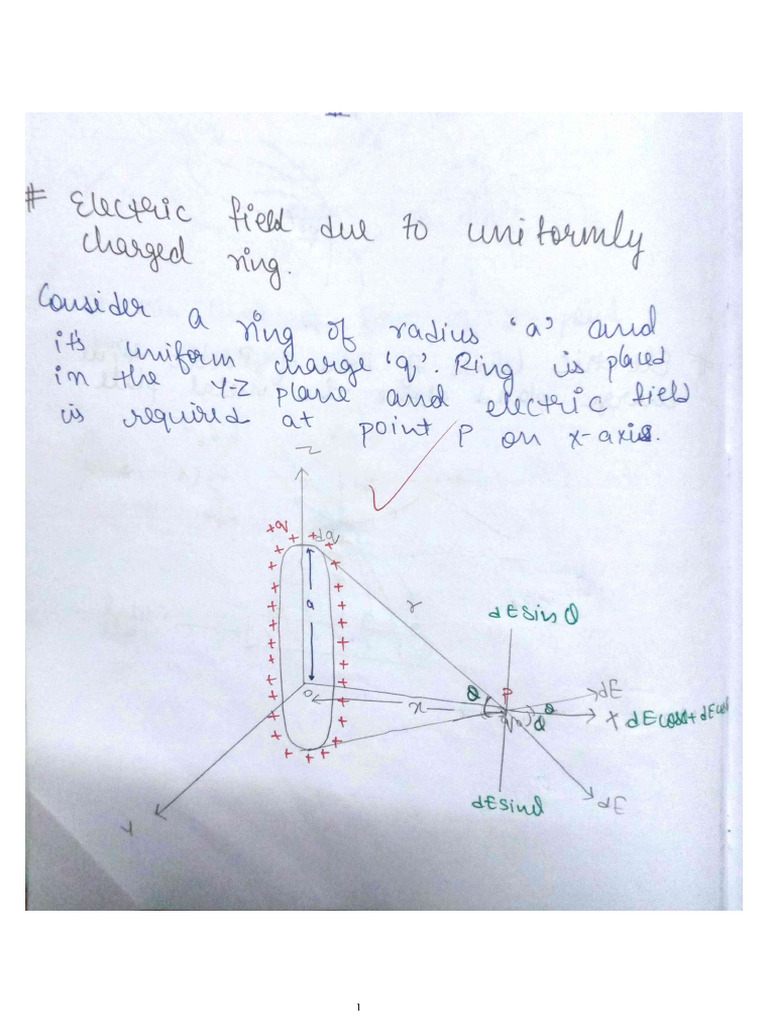 # Electric field due to uniformly
charged ring.
Consider a ring of radius 'a' and
it's uniform charge 'q'. Ring is placed
in the Y-Z plane and electric field
is required at point P on x-axis.
Z
+q
dq
a
r
dE sin θ
θ
P
dE
o
x
θ
θ
X
dE cosθ + dE cosθ
dE sinθ
dE
Y
1